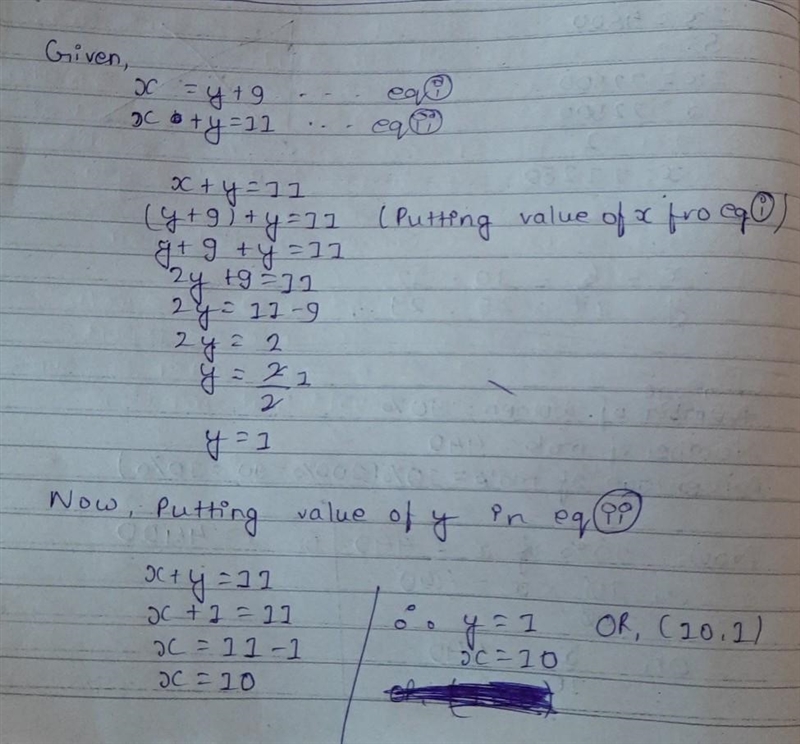 Given,
x = y+9 ... eq (i)
x +y=11 ... eq (ii)
x+y=11
(y+9)+y=11 (Putting value of x fro eq (i))
y+9+y=11
2y+9=11
2y=11-9
2y=2
y=2/2 1
y=1
Now, Putting value of y in eq (ii)
x+y=11
x+1=11
x=11-1
x=10
∴ y=1 OR, (10,1)
x=10